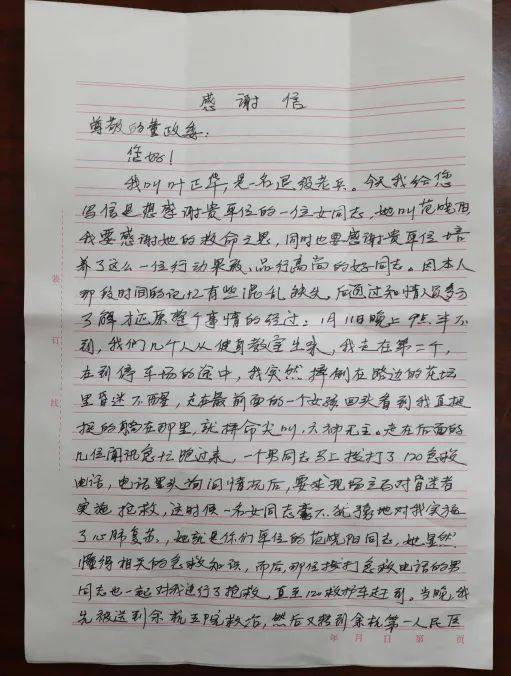 感谢信
尊敬的董政委:
您好!
我叫叶正华,是一名退役老兵。今天我给您
写信是想感谢贵单位的一位女同志,她叫范晓阳
我要感谢她的救命之恩,同时也要感谢贵单位培
养了这么一位行动果敢、品行高尚的好同志。因本人
那段时间的记忆有些混乱缺失,后通过知情人员多方
了解才还原整个事情的经过:1月11日晚上9点半不
到,我们几个人从健身教室出来,我走在第二个,
在到停车场的途中,我突然摔倒在路边的花坛
里昏迷不醒,走在最前面的一个女孩回头看到我直挺
挺的躺在那里,就拼命尖叫,六神无主。走在后面的
几位闻讯急忙跑过来,一个男同志马上拨打了120急救
电话,电话里头询问情况后,要求现场立马对昏迷者
实施抢救,这时候一名女同志毫不犹豫地对我实施
了心肺复苏,她就是你们单位的范晓阳同志,她显然
懂得相关的急救知识,而后那位拨打急救电话的男
同志也一起对我进行了抢救,直至120救护车赶到。当晚,我
先被送到余杭五院救治,然后又转到余杭第一人民医
年 月 日 第 页
装
订
线